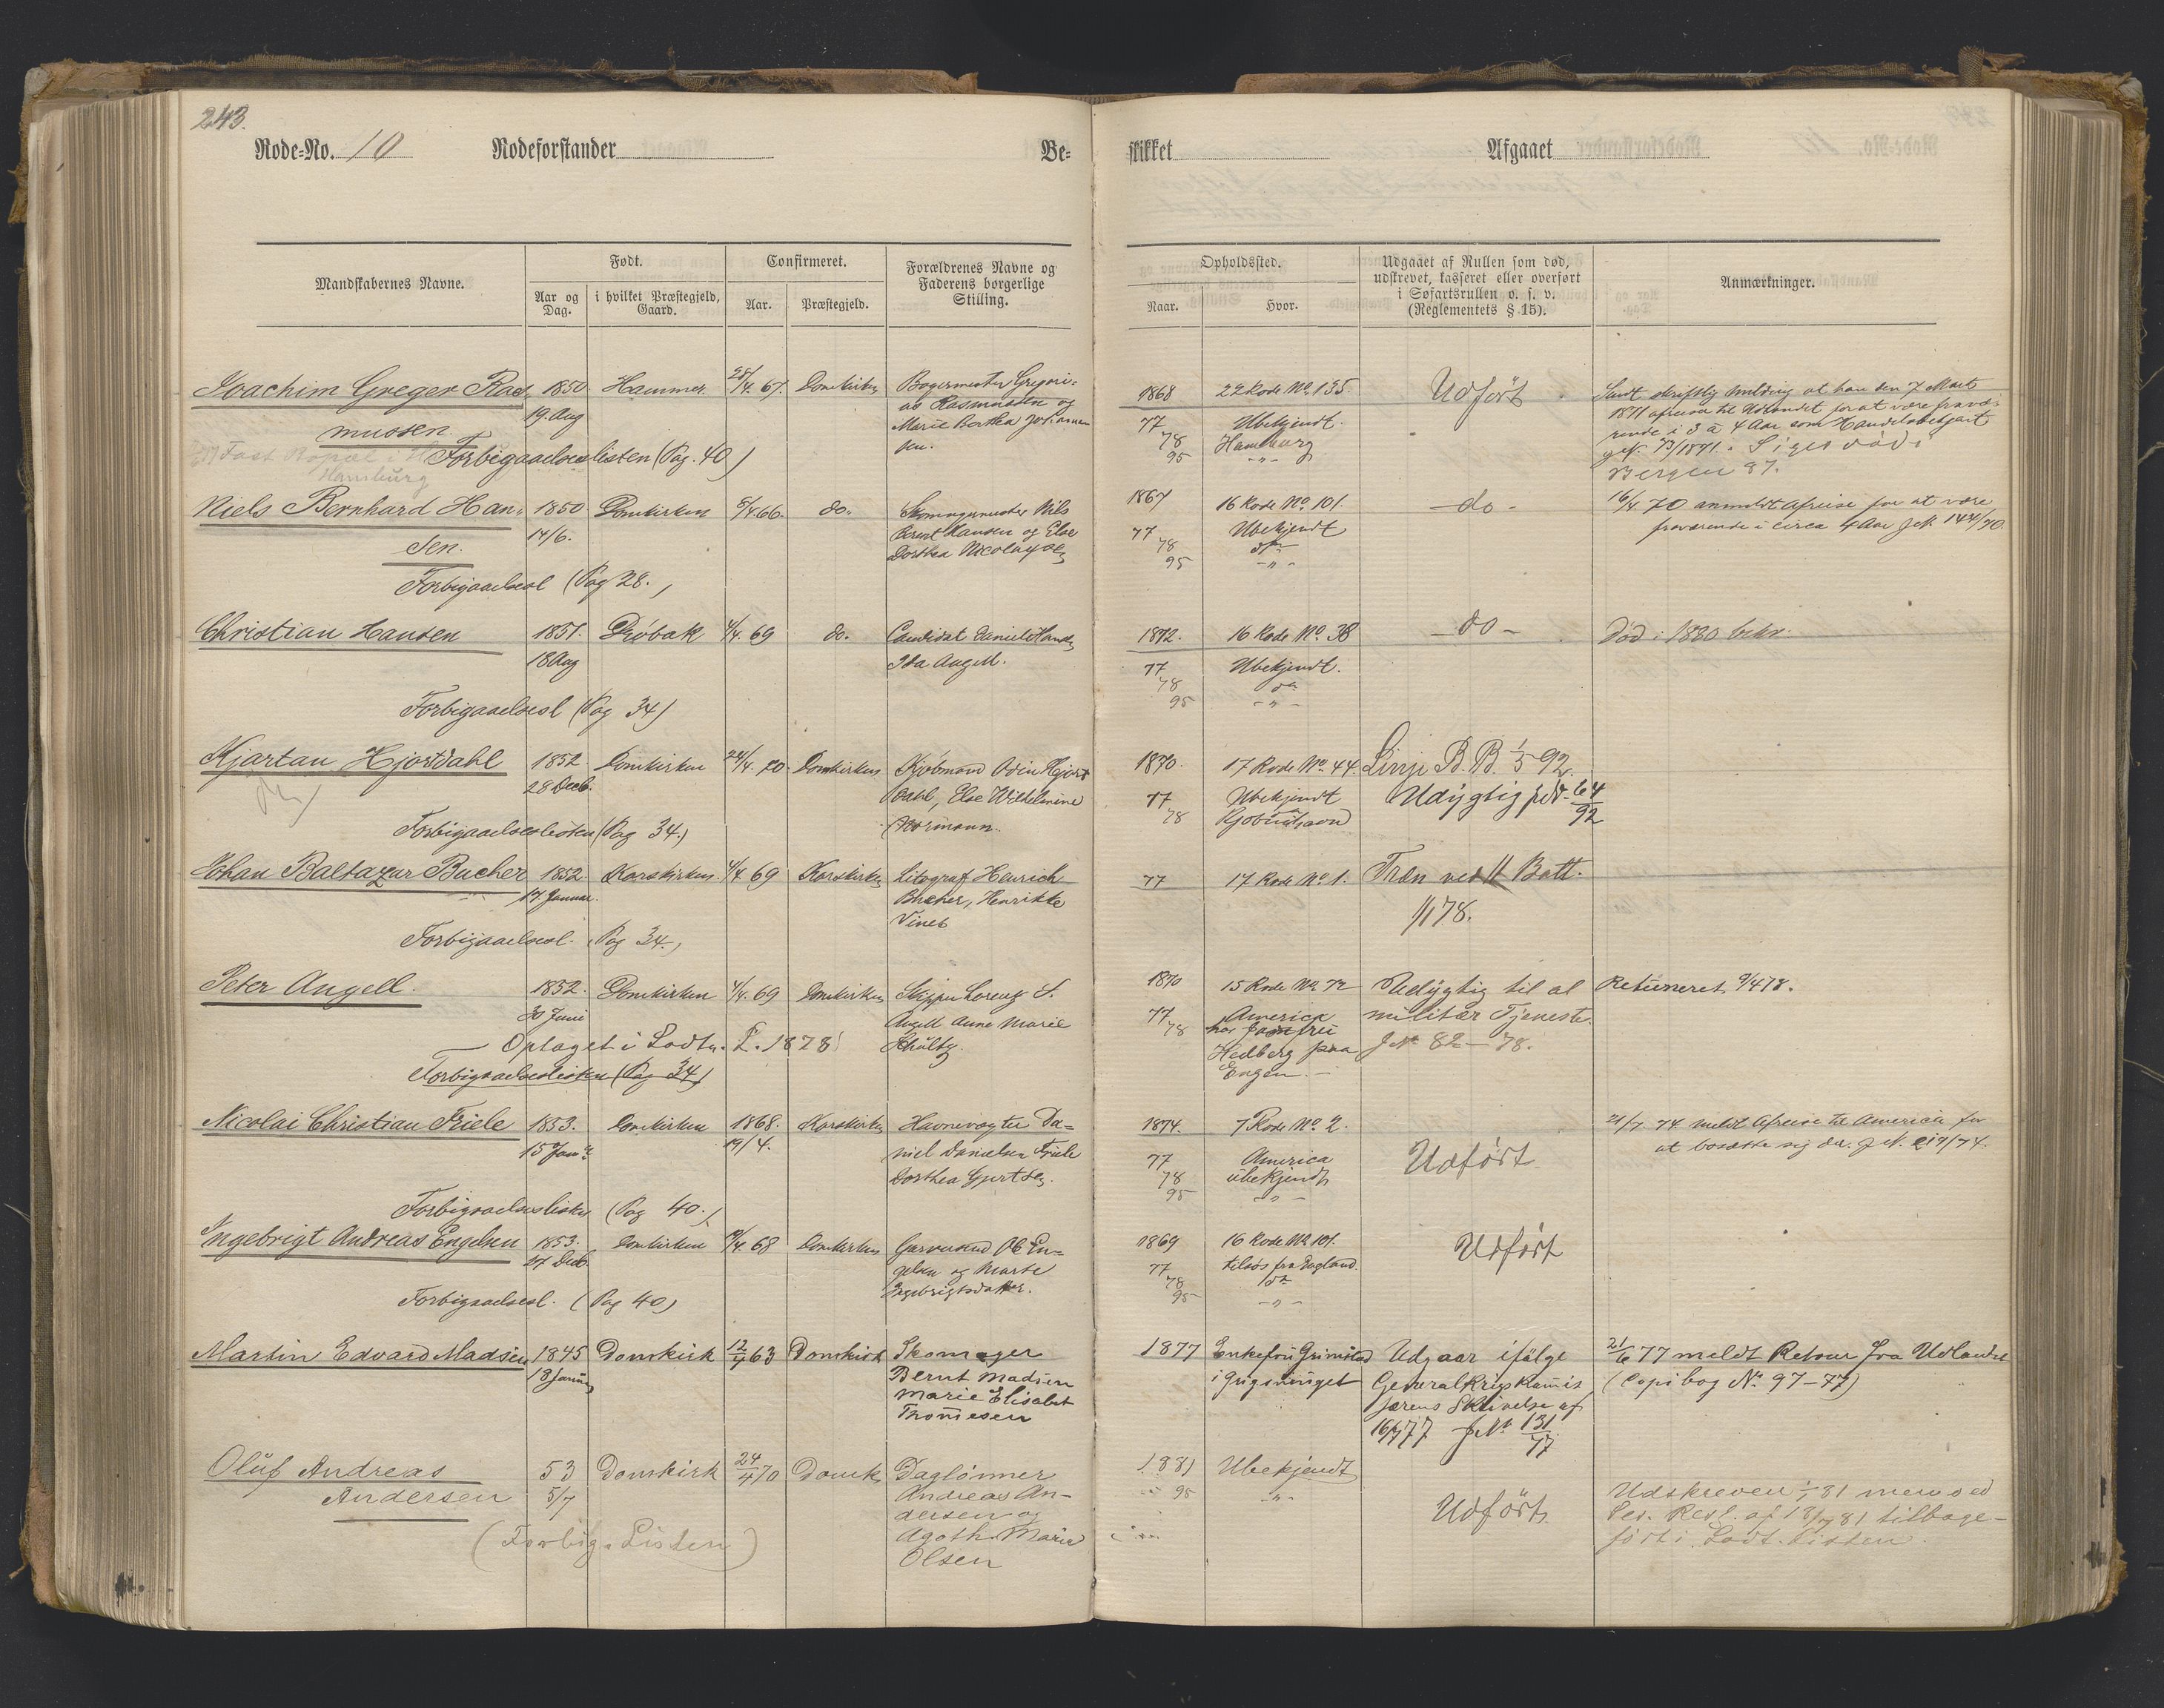 243.
Rode-No. 10 Rodeforstander Be-
skikket Afgaaet
Mandskabernes Navne.
Født.
Aar og Dag.
i hvilket Præstegjeld, Gaard.
Confirmeret.
Aar.
Præstegjeld.
Forældrenes Navne og
Faderens borgerlige
Stilling.
Opholdssted.
Naar.
Hvor.
Udgaaet af Rullen som død,
udskrevet, kasseret eller overført
i Søfartsrullen o. s. v.
(Reglementets § 15).
Anmærkninger.
Joachim Greger Ras- 1850. Hammer. 67. Domkirken
mussen. 19 Aug
Marie Berthea
Forbigaaelseslisten (Pag. 40)
Hamburg
1868 22 Rode No 135. Udført
77 Ubekjendt.
78 Hamburg
95 - " -
1871 afreiser til Udlandet for at være fravæ-
rende i 3 à 4 Aar som Handelsbetjent
Siges død i
Bergen 87.
Niels Bernhard Han- 1850 Domkirken 66. do.
sen. 14/6.
Skomagermester Nils
Bernt Hansen og Else
Dorthea Nicolaysen
Forbigaaelsesl (Pag 28.)
1867 16 Rode No 101. do -
77 Ubekjendt
78 do
95 - " -
16/4 70 anmeldt Afreise for at være
fraværende i circa 4 Aar J. N. 144/70.
Christian Hansen 1851. Drøbak 4/4. 69 do.
18 Aug
Ida Angell.
Forbigaaelsesl (Pag 34)
1872. 16 Rode No. 38 - do -
77 Ubekjendt.
78 do
95 - " -
Død i 1880
Kjartan Hjortdahl 1852 Domkirken 24/4. 70. Domkirken
28 Decb.
Kjøbmand Odin Hjort
dahl, Else Wilhelmine
Normann.
Forbigaaelseslisten (Pag 34.)
1870. 17 Rode No. 44. Linje B. B. 1/5 92.
77 Ubekjendt Udygtig 64/92
78 Kjøbenhavn
Johan Baltazar Bucher 1852 Korskirken. 4/4 69 Korskirken
17 Januar.
Litograf Henrich
Bucher, Henrikke
Vineb
Forbigaaelsesl. Pag 34.)
77 17 Rode No. 1. Træn ved Batt.
1/1 78.
Peter Angell. 1852. Domkirken 4/4. 69 Domkirken
30 Juni
Skipper Lorentz S.
Angell Anne Marie
Schultz.
Optaget i Lodtn. L. 1878
Forbigaaelseslisten (Pag 34)
1870 15 Rode No. 72 Udygtig til al
77 America militær Tjeneste.
78 hos Jomfru
Hedberg paa J No 82 - 78.
Engen. -
Returneret 9/4 78.
Nicolai Christian Friele 1853. Domkirken 1868. Korskirken
15 Janr. 19/4.
Havnevogter Da-
niel Danielsen Friele
Dorthea Gjertsen.
Forbigaaelseslisten (Pag 40.)
1874. 7 Rode No 2.
77 America Udført
78 ubekjendt
95 - " -
21/7. 74. meldt Afreise til America for
at bosætte sig der. J. N. 217/74.
Ingebrigt Andreas Engelsen 1853. Domkirken 68 Domkirken
27 Decb.
Garversvend Ole En-
gelsen og Marte
Ingebrigtsdatter.
Forbigaaelsesl. (Pag 40)
1869 16 Rode No 101. Udført
77 tilsøs fra England.
78 do
95 - " -
Martin Edvard Madsen 1845 Domkirk 12/4 63 Domkirk
18 Januar
Skomager
Bernt Madsen
Marie Elisabet
Thomesen
1877 Enkefru Grimstad Udgaar ifølge
Generalkrigskommis
særens Skrivelse af
16/7 77 J No 131/77
21/6 77 meldt Retour fra Udlandet
(Copibog No. 97 - 77)
Oluf Andreas 53 Domkirk 24/4 70 Domk
Andersen 5/7
Daglønner
Andreas An-
dersen og
Agathe Marie
Olsen
(Forbig. Listen)
1881 Ubekjendt
95 - " - Udført.
Udskreven 1/1 81 men ved
Ses. Resl. af 18/7 81 tilbage-
ført i Lodt. Listen.